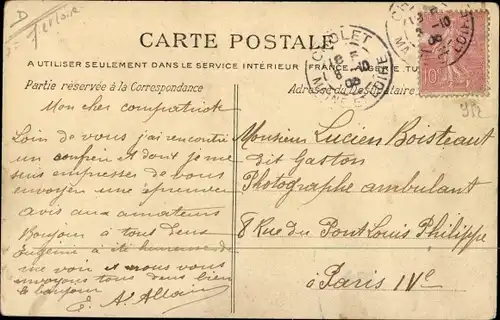 CARTE POSTALE
A UTILISER SEULEMENT DANS LE SERVICE INTÉRIEUR (FRANCE, ALGÉRIE, TU
Partie réservée à la Correspondance
Adresse du Destinataire
CHOLET
MAINE & LOIRE
10
Mon cher compatriote
Loin de vous j'ai rencontré
un confrère et dont je me
suis empresser de vous
envoyer une épreuve
avis aux amateurs
Bonjour à tous deux
Eugénie à été heureuse de
me voir et nous vous
envoyons tous deux bien
le bonjour
E. A. Allain
Monsieur Lucien Boisteaut
dit Gaston
Photographe ambulant
8 Rue du Pont Louis Philippe
à Paris IVe